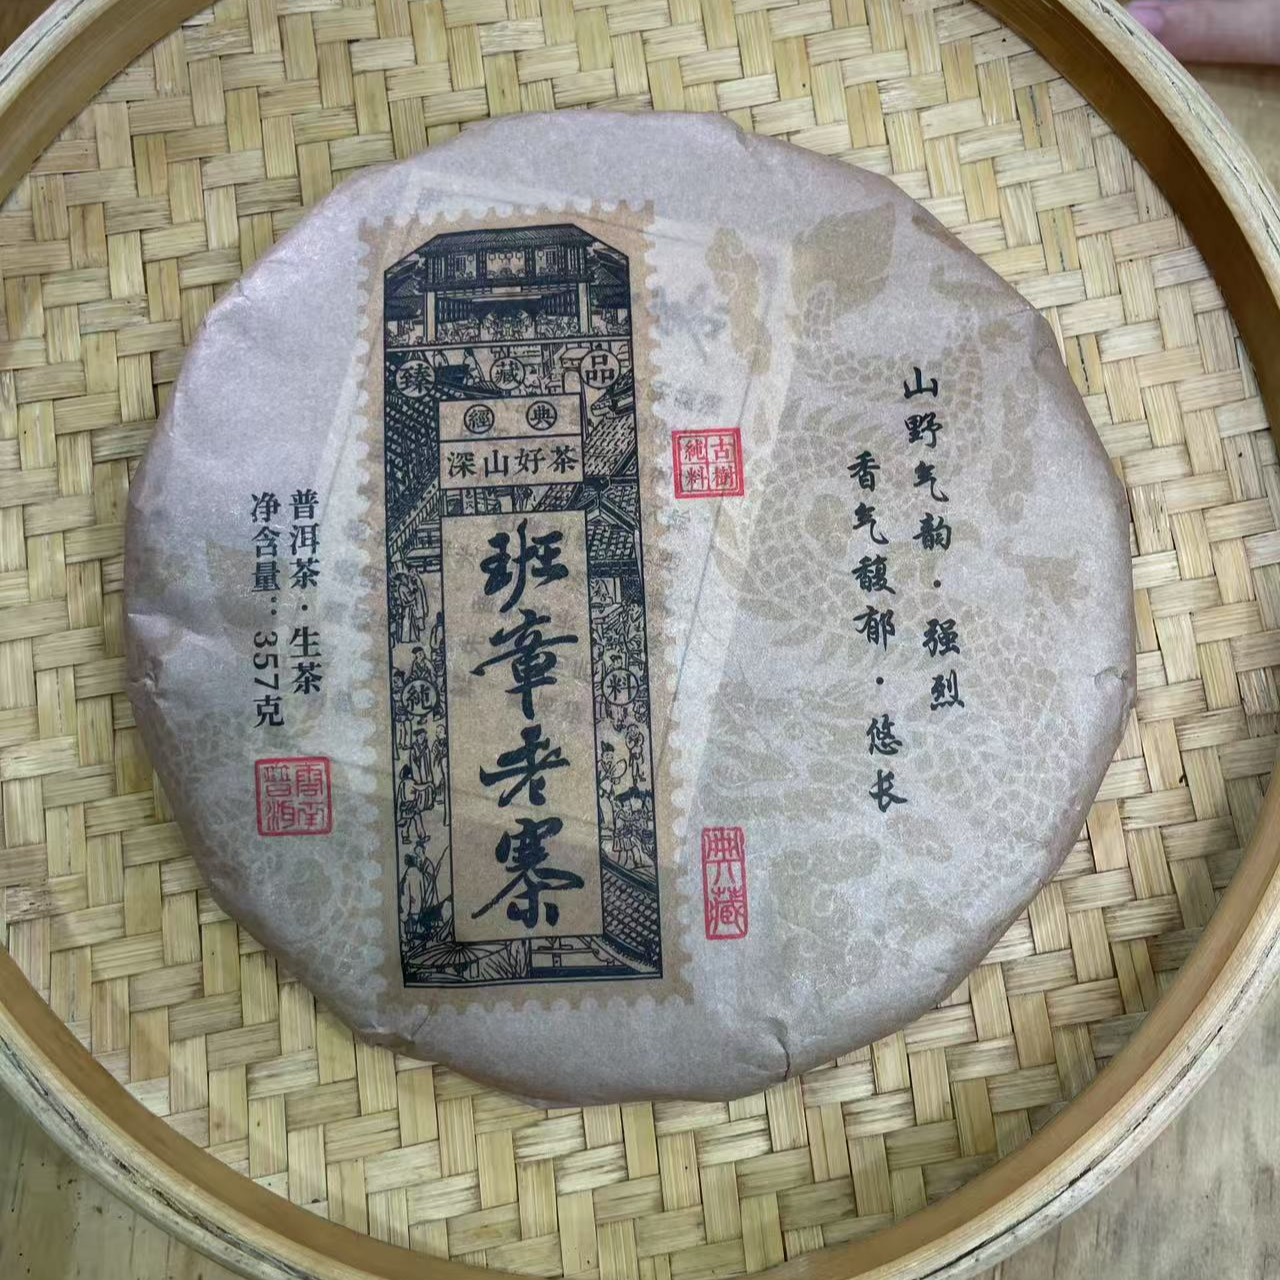 臻藏品
經典
深山好茶
班章老寨
純料
古樹
純料
山野气韵·强烈
香气馥郁·悠长
典藏
普洱茶·生茶
净含量:357克
雲南
普洱